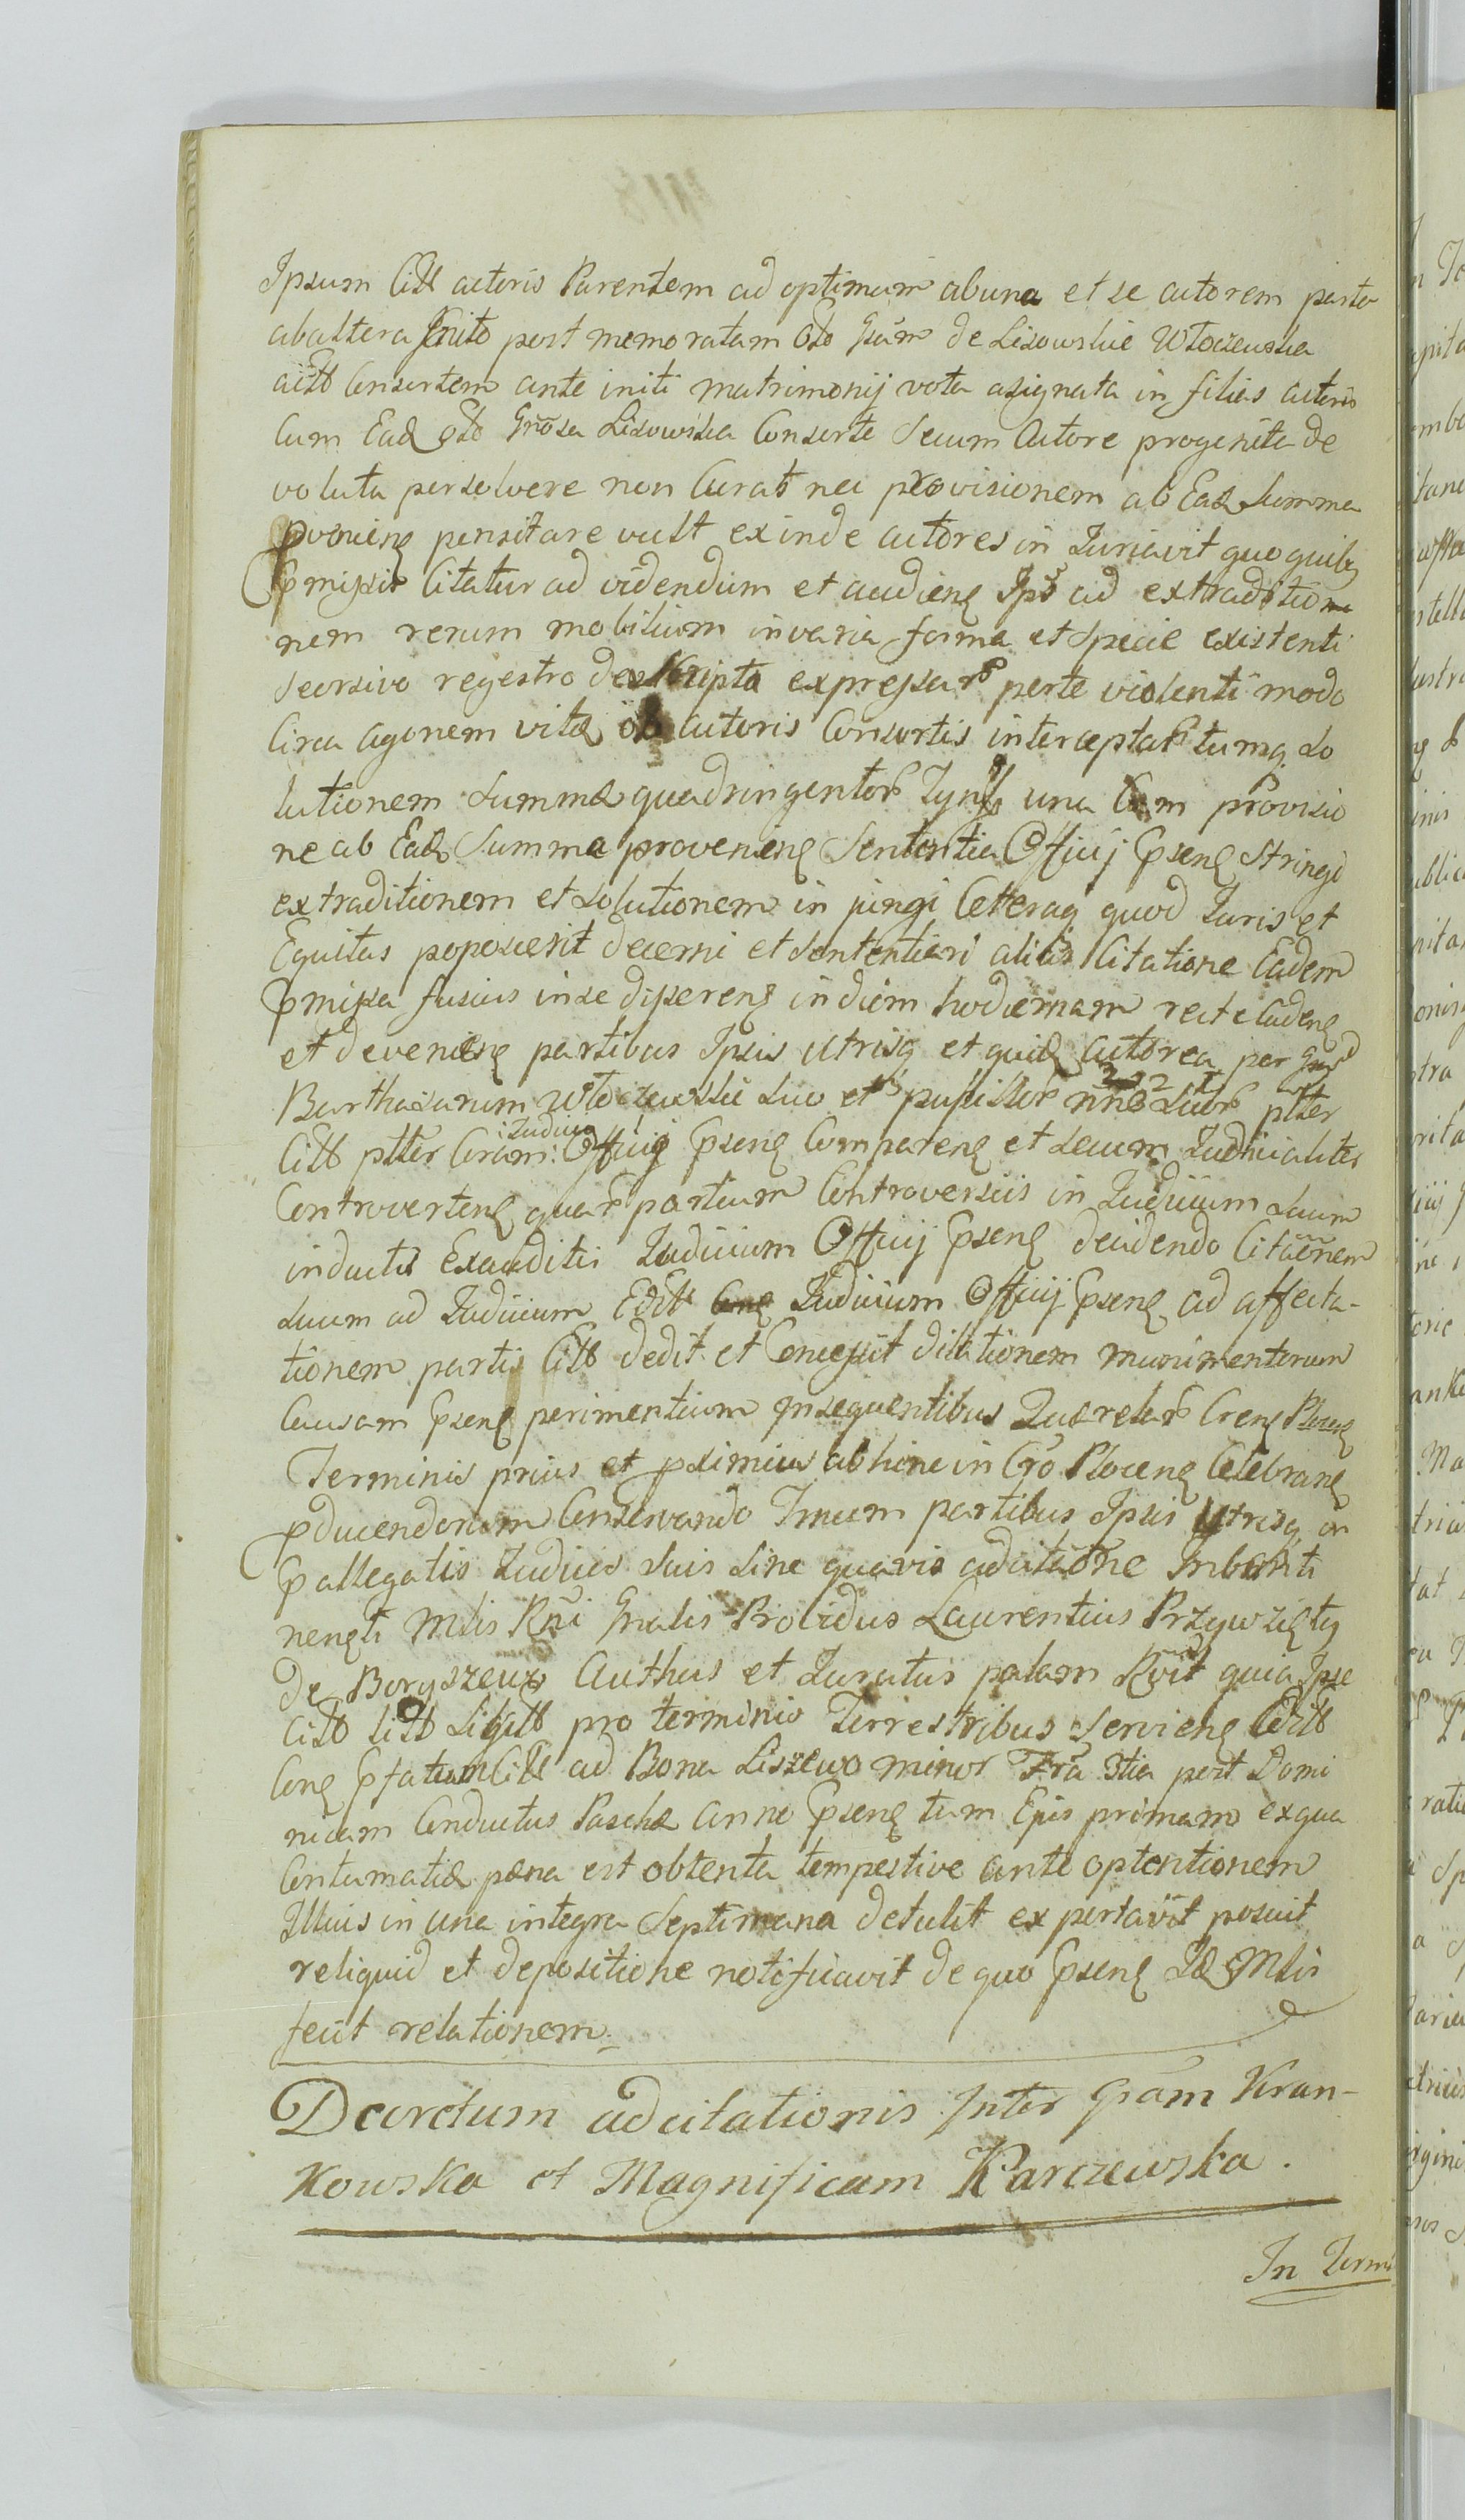 Ipsum Citt actoris Parentem ad optimum ab una et se actorem parte
ab altera inito post memoratam olo Gsam de Lisowskie Włoczewska
actt Consortem ante initi matrimonij vota asignata in filias actoris
Cum Ead olo Gnosa Lisowska Consorte Secum Actore progenita de
voluta persolvere non Curat nec provisionem ab Ead Summa
pvenien pensitare vult exinde actores in Iuriavit quo quibq
Pmissis Citatur ad videndum et audien Ips ad extraditiona
nem rerum mobilium in varia forma et Specie existenti
Seorsivo regestro deskripta expressar perte violenti modo
Circa agonem vitæ actoris Consortis interceptar tumq so
lutionem Summæ quadringentor Tynff una Cum provisio
ne ab Ead Summa provenien Sententia Officij Psen Stringi
extraditionem et solutionem in jungi Ceteraq quod Iuris et
Equitas poposcerit decerni et Sententiari alias Citatione Eadem
Pmissa fusius in se disseren in diem hodiernam recte Caden
et devenien partibus Ipsis utrisq et quid actorea per Gnsd
Barthasarum Włoczewski suo et pupillor nne suor plter
Citt plter Coram Iudicio Officij Psen Comparen et secum Iudicialiter
Controverten quar partium Controversiis in Iudicium suum
inductis Exauditis Iudicium Officij Psen decidendo Citaēnem
suum ad Iudicium Edtt Iudicium Officij Psen ad affecta-
tionem partis Citt dedit et Concessit dilationem munimentorum
Causam Psen perimentium in sequentibus Quærelar Cren Plocen
Terminis prius et pximius abhinc in Cro Plocen Celebran
pducendorum Conservando Tmum partibus Ipsis utrisq in
Pallegatis Iudicio suis sine quavis adcitatione Inboriti
nenti Mlis Rni Gnalis Providus Laurentius Przywzięty
de Boryszewo Authus et Iuratus palam Rvit quia Ipse
citt litt Sigitt pro terminis Terrestribus Servien Edtt
Con Pfatum Citt ad Bona Liszewo minor Fra 3tia post Domi
nicam Conductus Paschæ anno Psen tum Epis primam ex qua
Contumatiæ pæna est obtenta tempestive ante optentionem
Illius in una integra Septimana detulit expertavit posuit
reliquid et depositione notificavit de quo Psen Id Mlis
fecit relationem.
Decretum adcitationis Inter Gsam Kran-
kowska et Magnificam Karczewska.
In Termi